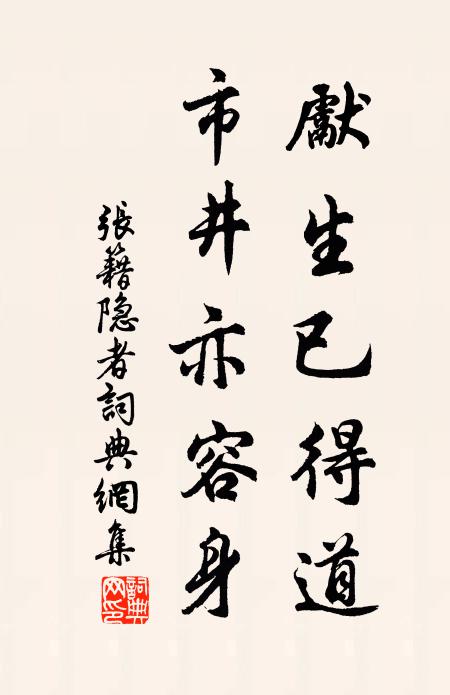 獻生已得道
市井亦容身
張籍隐者詞典網集
詞典网印